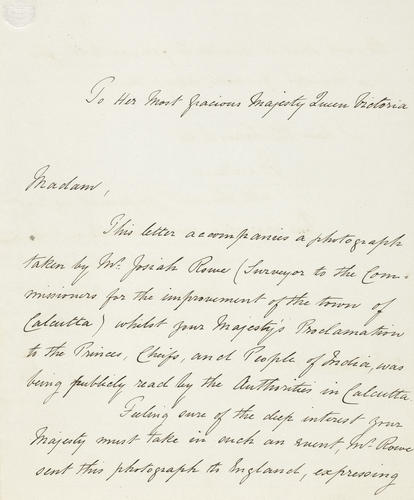 To Her Most Gracious Majesty Queen Victoria
Madam,
This letter accompanies a photograph
taken by Mr. Josiah Rowe (Surveyor to the Com-
missioners for the improvement of the town of
Calcutta) whilst your Majesty's Proclamation
to the Princes, Chiefs, and People of India, was
being publicly read by the Authorities in Calcutta.
Feeling sure of the deep interest your
Majesty must take in such an event, Mr. Rowe
sent this photograph to England, expressing